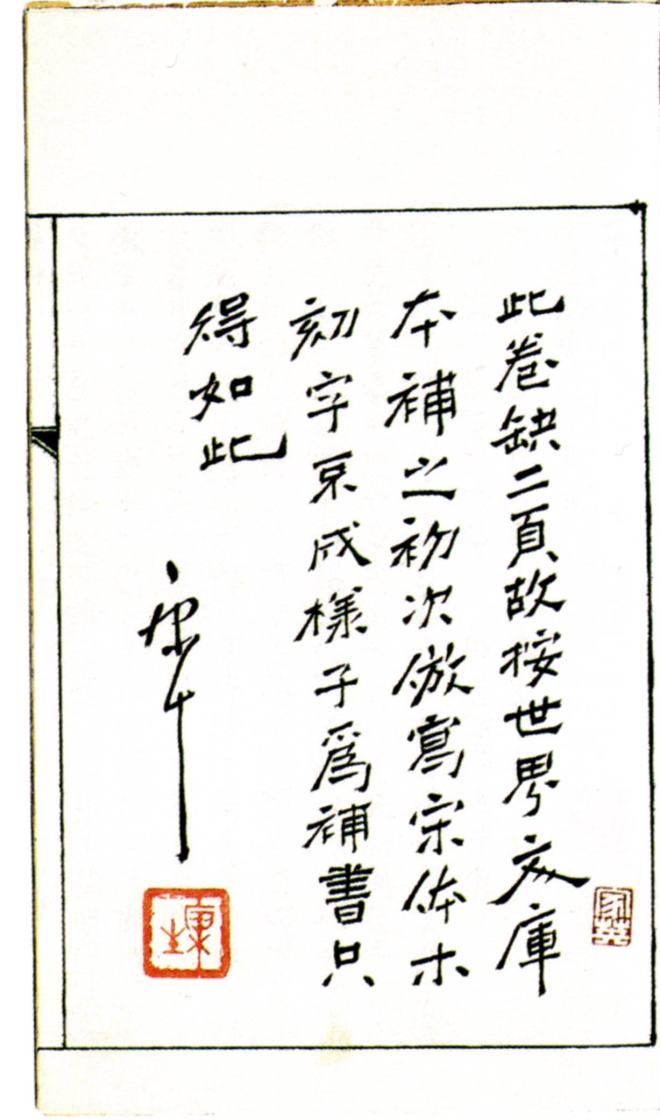 此卷缺二頁故按世界文庫
本補之初次倣寫宋体木
刻字成樣子爲補書只
得如此
康生
康生